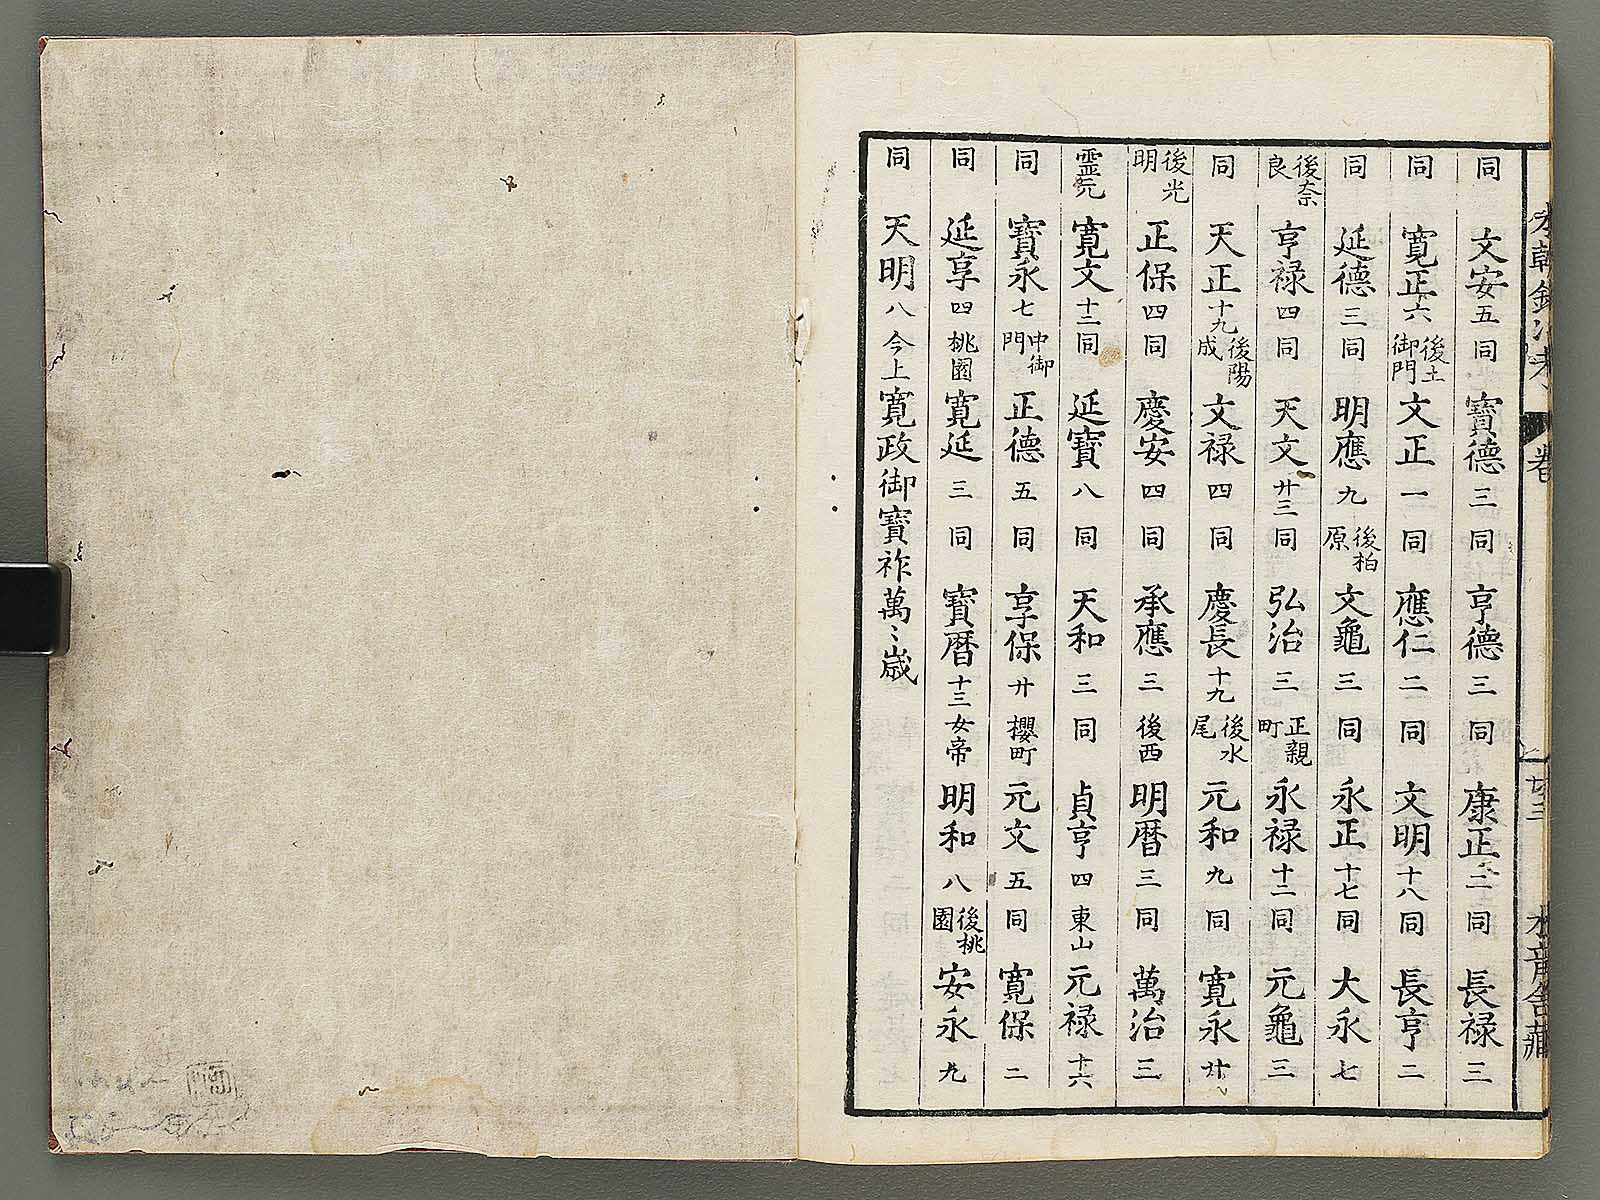 同 文安 五 同 寳德 三 同 亨德 三 同 康正 二 同 長禄 三
同 寛正 六 後土御門 文正 一 同 應仁 二 同 文明 十八 同 長亨 二
同 延德 三 同 明應 九 後柏原 文龜 三 同 永正 十七 同 大永 七
後奈良 亨禄 四 同 天文 廿三 同 弘治 三 正親町 永禄 十二 同 元龜 三
同 天正 十九 後陽成 文禄 四 同 慶長 十九 後水尾 元和 九 同 寛永 廿
後光明 正保 四 同 慶安 四 同 承應 三 後西 明暦 三 同 萬治 三
霊元 寛文 十二 同 延寳 八 同 天和 三 同 貞亨 四 東山 元禄 十六
同 寳永 七 中御門 正德 五 同 享保 廿 櫻町 元文 五 同 寛保 二
同 延享 四 桃園 寛延 三 同 寳暦 十三 女帝 明和 八 後桃園 安永 九
同 天明 八 今上 寛政御寳祚萬〻歳